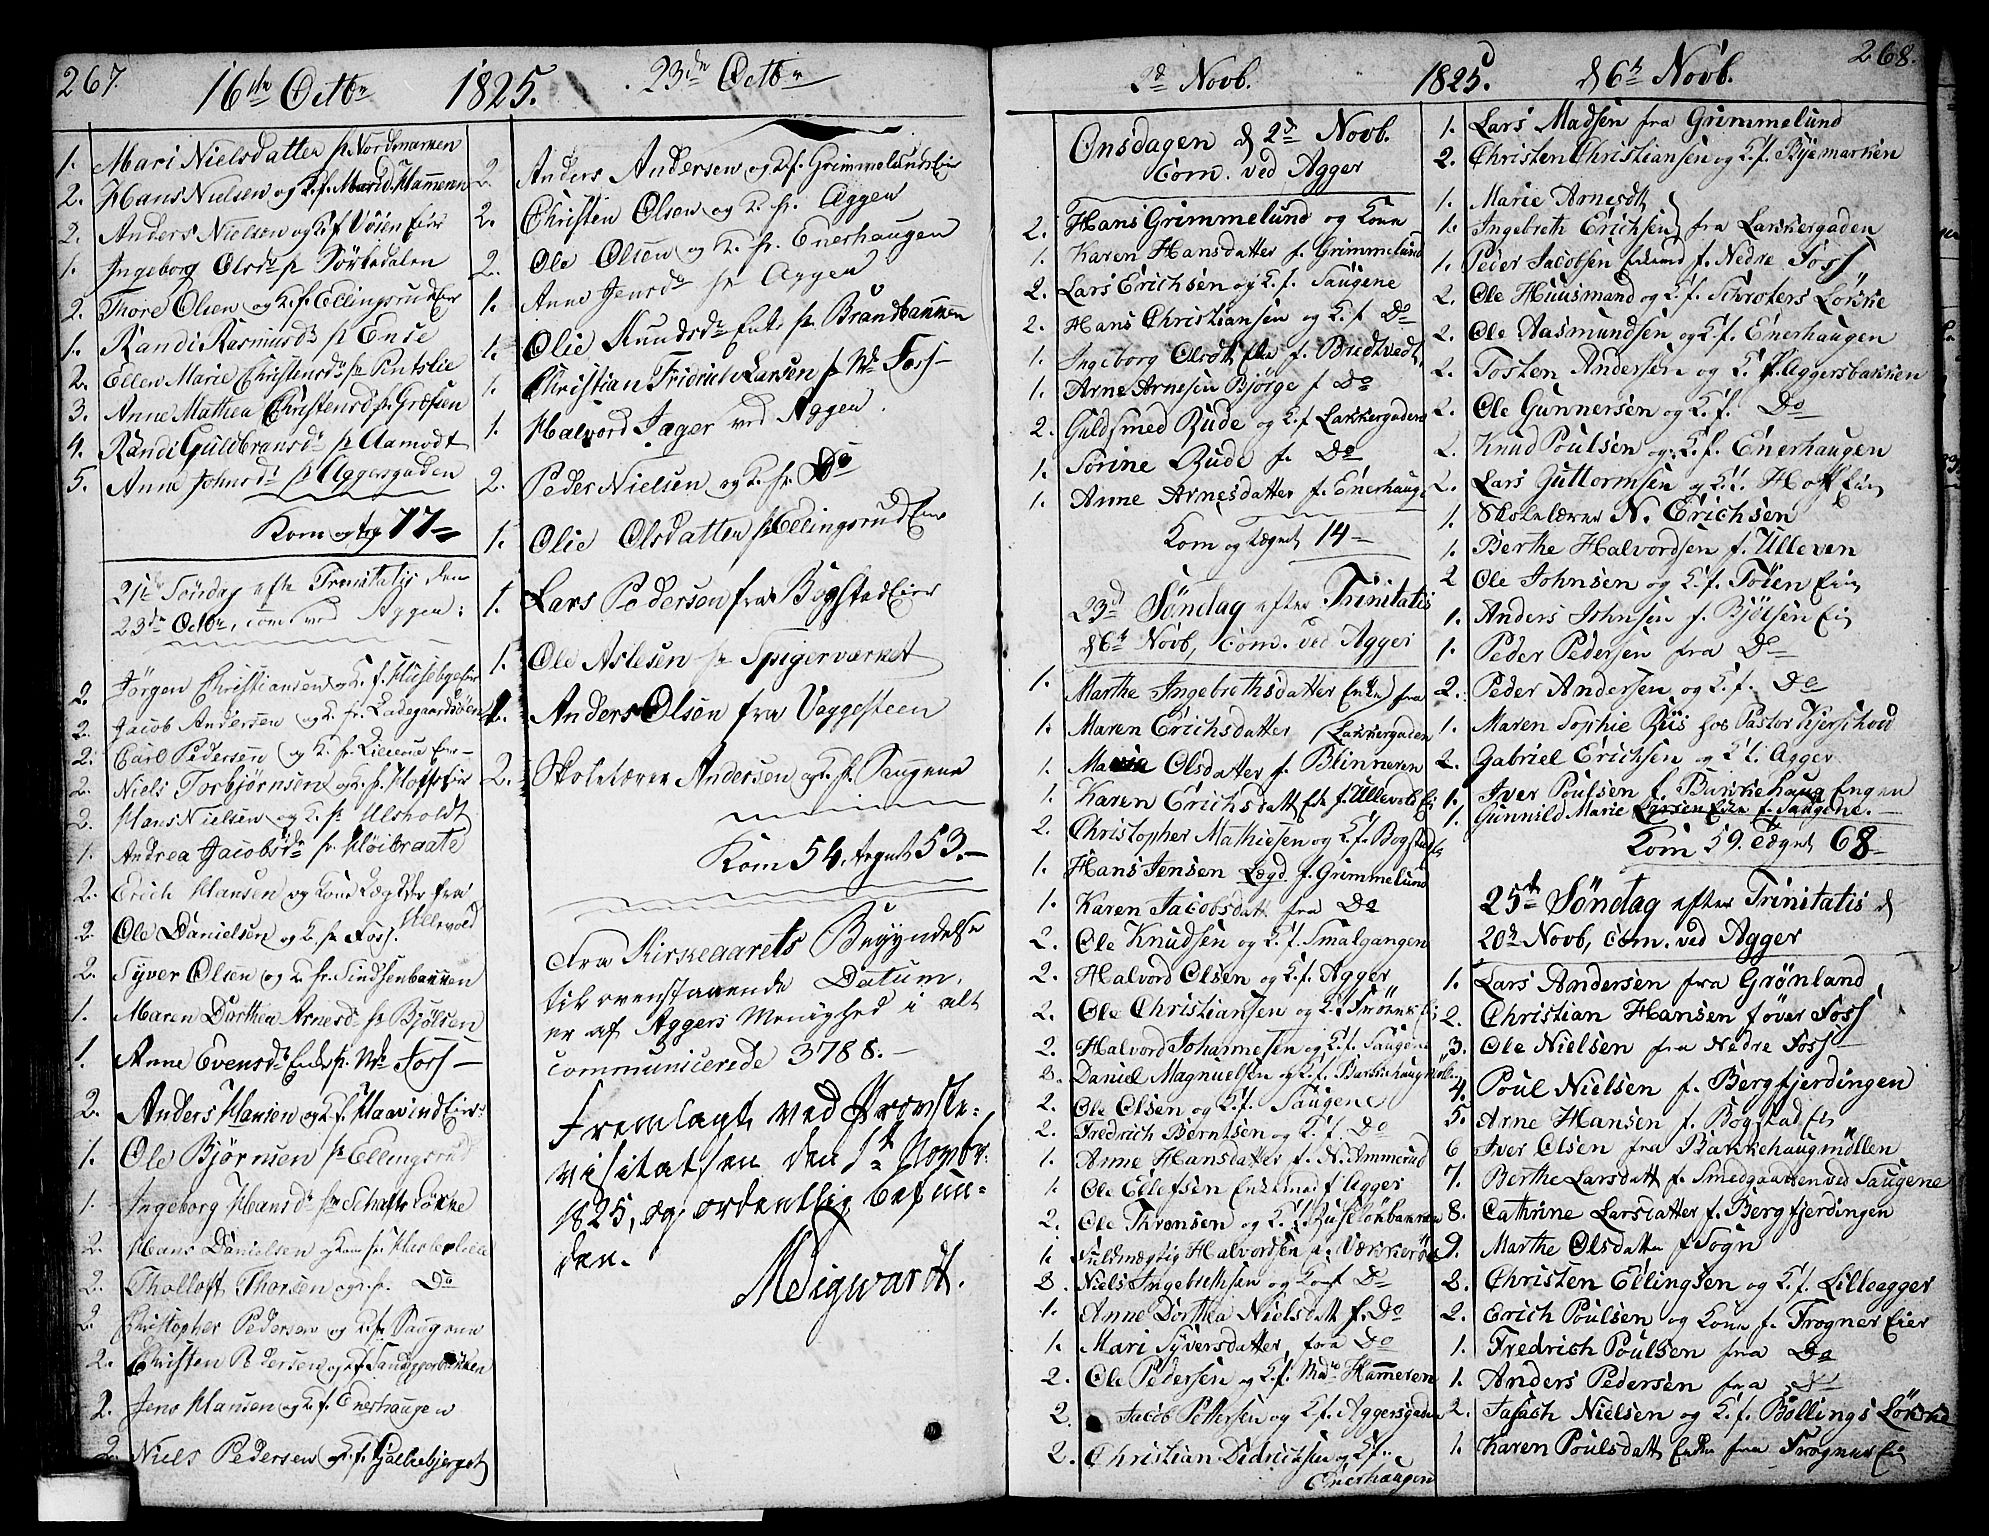 267. 16de Octbr 1825. 23de Octbr
1. Mari Nielsdatter fr Nordmarken
2. Hans Nielsen og K. f. Marid. Hammeren
2. Anders Nielsen og K f Vøien Eier
1. Ingeborg Olsdr fr Sørkedalen
2. Thore Olsen og K. f. Ellingsrud Eier
1. Randi Rasmusdr fr Ense
2. Ellen Marie Christensdr fr Pintslie
3. Anne Mathea Christensd fr. Græsien
4. Randi Guldbransdr fr Aamodt
5. Anne Johnsdr fr Aggersgaden
Kom og tog 77
21de Søndag efte Trinitatis den
23de Octbr, com ved Aggers:
2. Jørgen Christiansen og K. f. Husebyeier
2. Jacob Andersen og K. fr. Ladegaardsøen
2. Carl Pedersen og K. fr. Lilleoue Eier
2. Niels Torbjørnsen og K. fr. Hoffseier
2. Hans Nielsen og K. fr Ulsholdt
1. Andrea Jacobsdr fr. Kløibraate
2. Erich Hansen og Kone Lægdr fra
Ullevold
2. Ole Danielsen og K. fr Foss.
2. Syver Olsen og K. fr. Sindsenbakken
1. Maren Dorthea Arnesdr fr Bjølsen
1. Anne Evensdr Enke fr. Nd. Foss
2. Anders Hansen og K. f. Haavind Eier
1. Ole Bjørnsen fr Ellingsrud
1. Ingeborg Hansdr fr Schafts Løkke
2. Hans Danielsen og Kone fr. Hesteløkke
2. Tholloft Thorsen og K. fr. Do
2. Christopher Pedersen og K. fr Saugene
2. Christen Pedersen og K f Sandaggerbakken
2. Jens Hansen og K. f. Enerhaugen
2. Niels Pedersen og K. f. Galhebjerget
2. Anders Andersen og K. f. Grimmelunds Eier
2. Christen Olsen og K. fr. Aggers
2. Ole Olsen og K. fr. Enerhaugen
1. Anne Jensdr fr Aggers
1. Olie Knudsdr Enke fr Brandbakken
1. Christian Fridrich Larsen fr Nd. Foss
1. Halvord Jager ved Aggers.
2. Peder Nielsen og K. fr. Do
1. Olie Olsdatter fr Ellingsrud Eier
1. Lars Pedersen fra Bogstad Eier
1. Ole Aslesen fr Spigerværket
1. Anders Olsen fra Vaggesteen
2. Skolelærer Andersen og K. fr. Saugene
Kom 54. tegnet 53.
Fra Kirkeaarets Begyndelse
til ovenstaaende Datum,
er af Aggers Menighed i alt
communicerede 3788.
Fremlagt ved Provste-
visitatsen den 1te Novbr.
1825, og ordentlig befun-
den.
N Sigwardt.
2d Novb. 1825. d 6te Novb. 268.
Onsdagen d 2den Novb.
Com. ved Agger
2. Hans Grimmelund og Kone
1. Karen Hansdatter f. Grimmelund
2. Lars Erichsen og K. f. Saugene
2. Hans Christiansen og K. f. Do
1. Ingeborg Olsdtt Eke f. Bredtvedt
1. Arne Arnesen Bjørge f Do
2. Guldsmed Rude og K. f Lakkergaden
1. Sørine Rude f. Do
1. Anne Arnesdatter f. Enerhaug
Kom og tegnet 14
23d Søndag efter Trinitatis
d 6te Novb, Com. ved Agger
1. Marthe Ingebrethsdatter Enke fra
1. Maren Erichsdatter Lakkergaden
1. Marie Olsdatter f. Blinneren
1. Karen Erichsdatt Eke f. Ullevold Ei
2. Christopher Mathiesen og K. f. Bogstad Ei
1. Hans Jensen Lægd. f. Grimmelund
1. Karen Jacobsdatt fra Do
2. Ole Knudsen og K. f. Smalgangen
2. Halvord Olsen og K. f. Agger
2. Ole Christiansen og K. f. Frøkne Ei
2. Halvord Johannesen og K. f. Saugene
2. Daniel Magnuelsen og K. f. Bakkehaugmølen
2. Ole Olsen og K. f. Saugene
2. Fredrich Berntsen og K. f. Do
1. Anne Hansdatter f. N. Ammerud
1. Ole Ellefsen Enkemd f. Agger
2. Ole Thronsen og K. f. Ruseløkbakken
1. Fuldmægtig Halvordsen f. Vækkerøe
2. Niels Ingebrethsen og Ko. f. Do
1. Anne Dorthea Nielsdatt f. Do
1. Mari Syversdatter fra Do
2. Ole Pedersen og K. f. Mads. Hammeren
2. Jacob Pettersen og K. f. Aggersgaden
2. Christian Didrichsen og K. f.
Enerhaugen
1. Lars Madsen fra Grimmelund
2. Christen Christiansen og K. f. Byemarken
1. Marie Arnesdtt
1. Ingebreth Erichsen fra Lakkergaden
1. Peder Jacobsen Enkemd f. Nedre Foss
2. Ole Huusmand og K. f. Schrøters Løkke
2. Ole Aasmundsen og K. f. Enerhaugen
2. Tosten Andersen og K. f. Aggersbakken
2. Ole Gunnersen og K. f. Do
2. Knud Poulsen og K. f. Enerhaugen
2. Lars Guttormsen og K. f. Hoff Eie
1. Skolelærer N. Erichsen
1. Berthe Halvordsen f. Ulleven
2 Ole Johnsen og K. f. Tøien Eie
1. Anders Johnsen f. Bjølsen Ei
1. Peder Pedersen fra Do
2. Peder Andersen og K. f. Do
1. Maren Sophie Riis hos Pastor Kjerskow
2. Gabriel Erichsen og K. f. Agger
1. Iver Poulsen f. Bakkehaug Engen
1. Gunnild Marie Larsen Eke f. Saugene.
Kom 59. tegnet 68
25de Søndag efter Trinitatis d
20de Novb, Com. ved Agger
1. Lars Andersen fra Grønland
2. Christian Hansen f øver Foss
3. Ole Nielsen fra Nedre Foss
4. Poul Nielsen f. Bergfjerdingen
5. Arne Hansen f. Bogstad Ei
6 Iver Olsen fra Bakkehaugmøllen
7. Berthe Larsdatt f. Smedgaarten ved Saugene
8. Cathrine Larsdatter f. Bergfjerdingen
9. Marthe Olsdatter f Sogn
2. Christen Ellingsen og K. f. Lilleagger
2. Erich Poulsen og Kone f. Frogner Eier
1. Fredrich Poulsen fra Do
1. Anders Pedersen fra do
2. Jasach Nielsen og K. f. Bøllings Løkke
1. Karen Poulsdatt Enke fra Frogner Ei